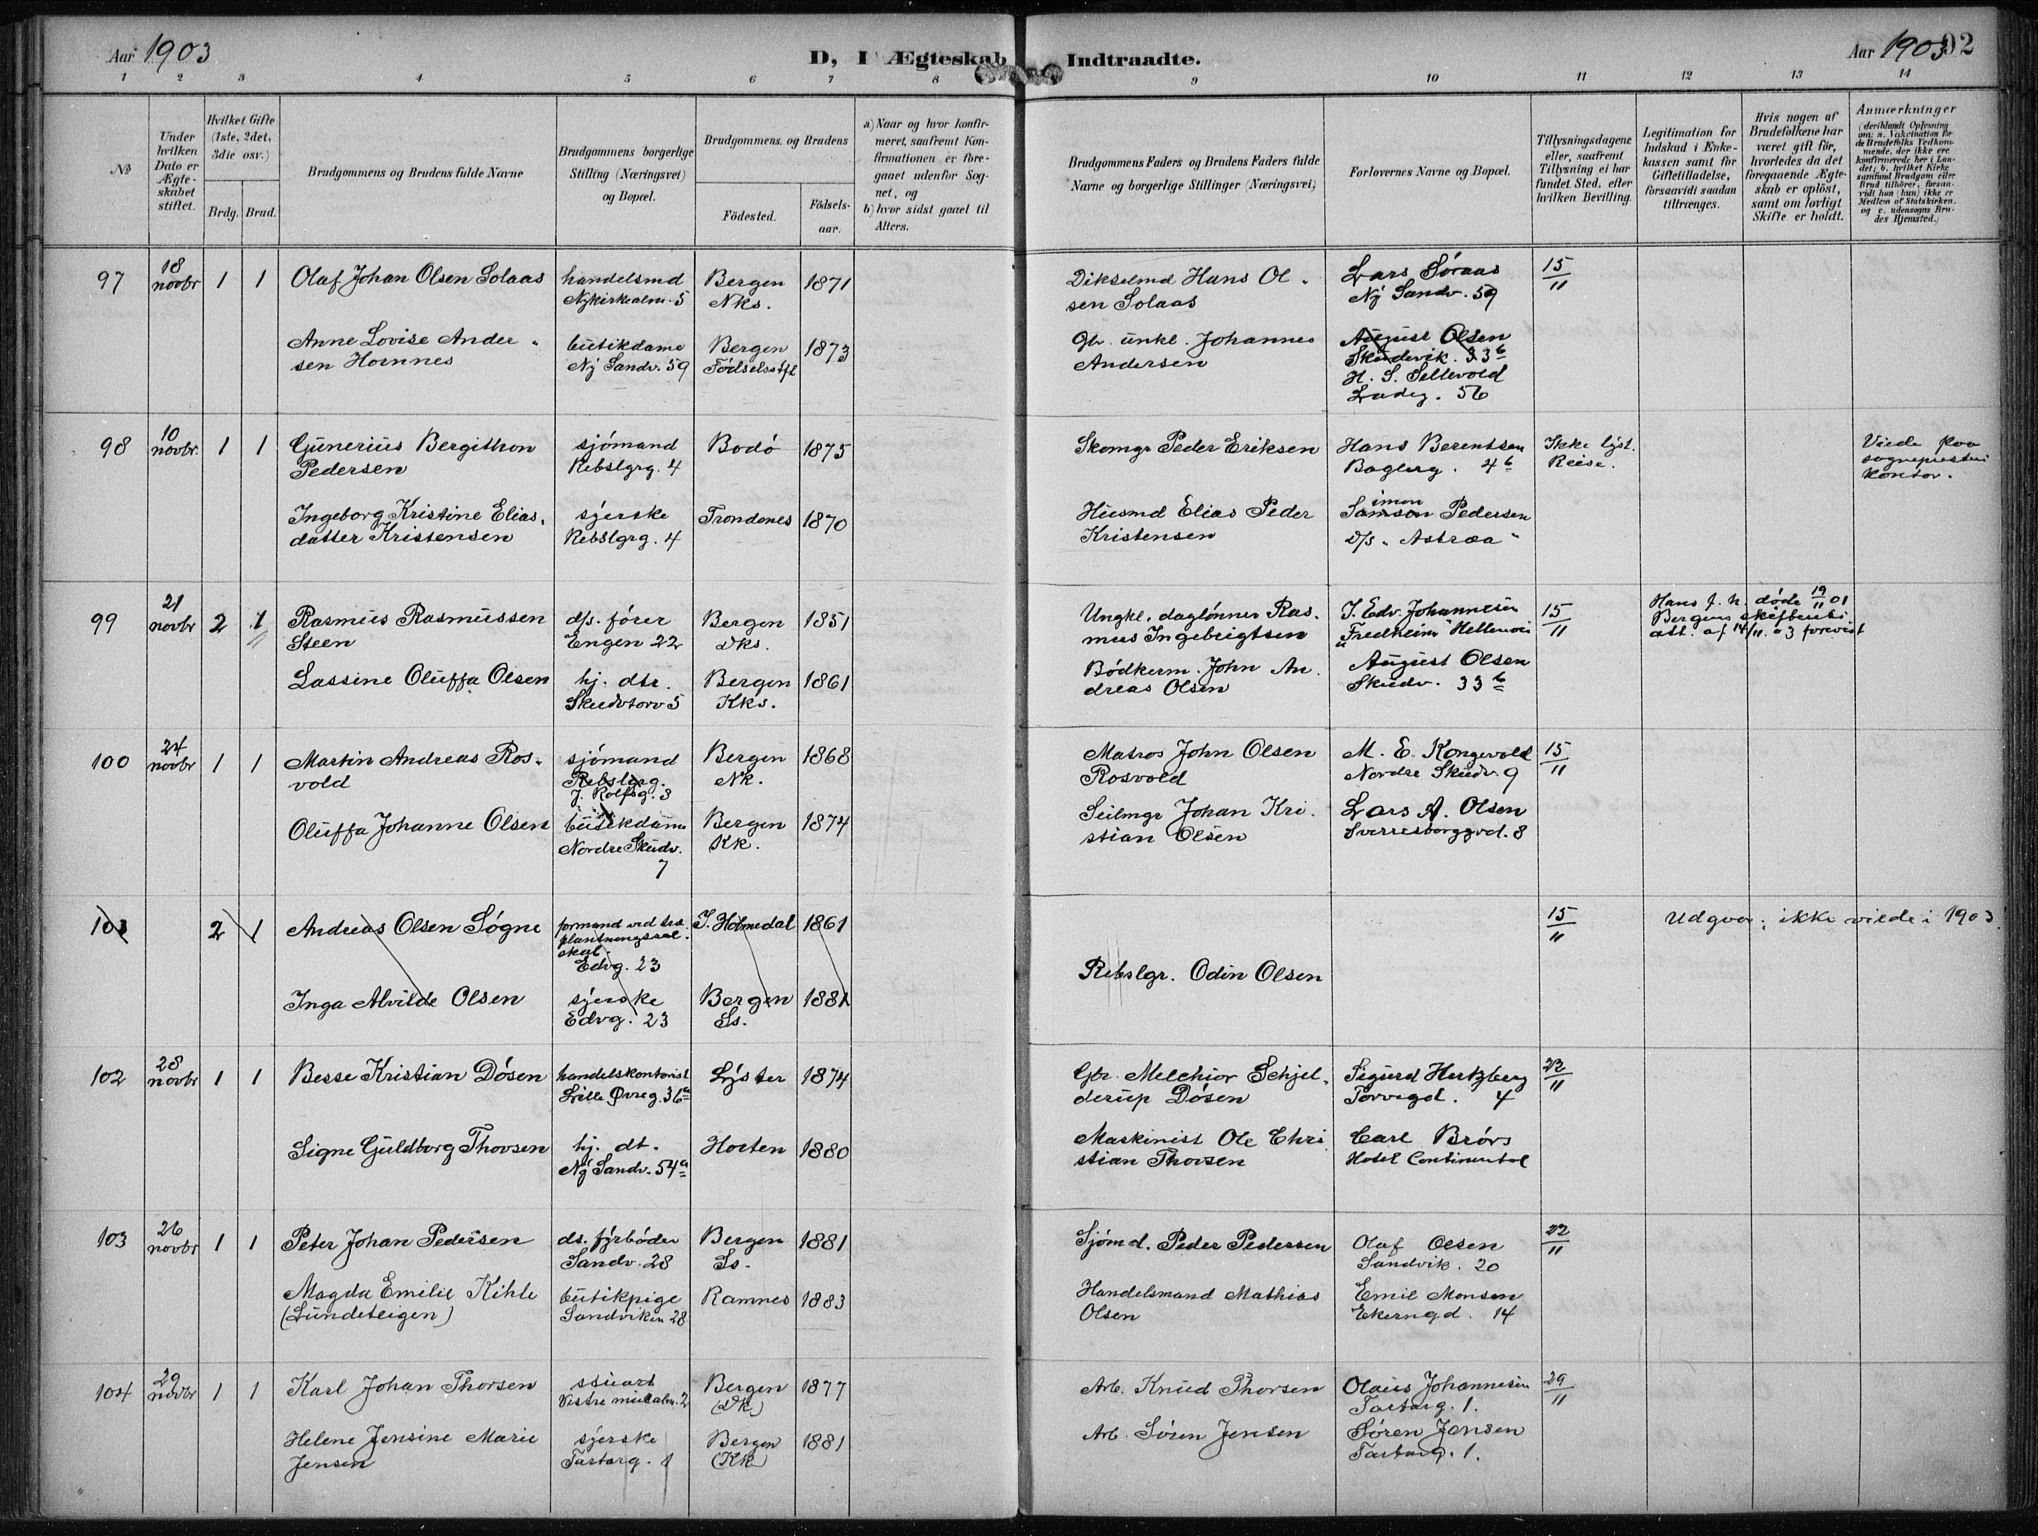 Aar 1903
D, I Ægteskab Indtraadte.
Aar 1903
92
1 2 3 4 5 6 7 8 9 10 11 12 13 14
№
Under hvilken Dato er Ægteskabet stiftet.
Hvilket Gifte (1ste, 2det, 3die osv.)
Brdg. Brud.
Brudgommens og Brudens fulde Navne
Brudgommens borgerlige Stilling (Næringsvei) og Bopæl.
Brudgommens og Brudens
Födested.
Födselsaar.
a) Naar og hvor konfirmeret, saafremt Konfirmationen er foregaaet udenfor Sognet, og
b) hvor sidst gaaet til Alters.
Brudgommens Faders og Brudens Faders fulde Navne og borgerlige Stillinger (Næringsvei)
Forlovernes Navne og Bopæl.
Tillysningsdagene eller, saafremt Tillysning ei har fundet Sted, efter hvilken Bevilling.
Legitimation for Indskud i Enkekassen samt for Giftetilladelse, forsaavidt saadan tiltrænges.
Hvis nogen af Brudefolkene har været gift för, hvorledes da det foregaaende Ægteskab er oplöst, samt om lovligt Skifte er holdt.
Anmærkninger
(deriblandt Oplysning om: a. Vakcination for de Brudefolks Vedkommende, der ikke ere konfirmerede her i Landet; b. hvilket Kirkesamfund Brudgom eller Brud tilhörer, forsaavidt han (hun) ikke er Medlem af Statskirken, og c. udensogns Brudes Hjemsted.)
97
18 novbr
1 1
Olaf Johan Olsen Solaas
handelsmd
Nykirkealm. 5
Bergen
Nks.
1871
Hans Olsen Solaas
Lars Søraas
Ny Sandv. 59
15/11
Anne Lovise Andersen Hornnes
butikdame
Ny Sandv. 59
Bergen
Fødselsstft
1873
Gbr. unkl. Johannes
Andersen
August Olsen
Skudevik. 33b
H. S. Sellevold
Ladeg. 56
98
10 novbr.
1 1
Gunerius Bergithon
Pedersen
sjómand
Rebslgrg. 4
Bodó
1875
Skomgr Peder Eriksen
Hans Berentsen
4b
Ikke lyst.
Reise.
Viede paa
sogneprestens
kontor.
Ingeborg Kristine Elias,
datter Kristensen
syerske
Rebslgrg. 4
Trondenes
1870
Husmd Elias Peder
Kristensen
imon
Samson Pedersen
D/s „Astræa"
99
21 novbr
2 1
Rasmus Rasmussen
Steen
d/s. fórer
Engen 22
Bergen
Dks.
1851
Ungkl. daglønner Rasmus Ingebrigtsen
J. Edv. Johannesen
"Fredheim" Hellevei
15/11
Hans f. h. døde 19/11 01
Bergens skifterets
att. af 14/11. 03 forevist
Lassine Oluffa Olsen
hj. dtr.
Skudvtorv 5
Bergen
Kks.
1861
Bødkerm. John Andreas Olsen
August Olsen
Skudv. 33b
100
24 novbr
1 1
Martin Andreas Rosvold
sjómand
Rebslgrg.
J. Rolfsg. 3
Bergen
Nk.
1868
Matros John Olsen
Rosvold
M. E. Kongevold
Nordre Skudv. 9
15/11
Oluffa Johanne Olsen
butikdame
Nordre Skudv.
7
Bergen
Kk.
1874
Seilmgr Johan Kristian Olsen
Lars A. Olsen
Sverresborggd. 8
101
2 1
Andreas Olsen Søgne
formand ved træ
plantningssel
skab.
Edvg. 23
I. Holmedal
1861
15/11
Udgaar; ikke viede i 1903
Inga Alvilde Olsen
syerske
Edvg. 23
Bergen
Ss.
1881
Rebslgr. Odin Olsen
102
28 novbr
1 1
Besse Kristian Dósen
handelskontorist
Lille Øvreg. 36a
Lyster
1874
Gbr. Melchior Schjelderup Dósen
Sigurd Hertzberg
Torvegd. 4
22/11
Signe Guldborg Thorsen
hj. dt.
Ny Sandv. 54a
Horten
1880
Maskinist Ole Christian Thorsen
Carl Brórs
Hotel Continental
103
26 novbr
1 1
Peter Johan Pedersen
ds. fyrbóder
Sandv. 28
Bergen
Ss.
1881
Sjømd. Peder Pedersen
Olaf Olsen
Sandvik. 20
22/11
Magda Emilie Kihle
(Lundeteigen)
butikpige
Sandviken 28
Ramnes
1883
Handelsmand Mathias
Olsen
Emil Monsen
Ekerngd. 14
104
29 novbr
1 1
Karl Johan Thorsen
stuart
Vestre muralm. 2
Bergen
(Dk)
1877
Arb. Knud Thorsen
Olaus Johannesen
Tartarg. 1.
29/11
Helene Jensine Marie
Jensen
syerske
Tartarg. 1
Bergen
(Kk)
1881
Arb. Søren Jensen
Søren Jensen
Tartarg. 1.